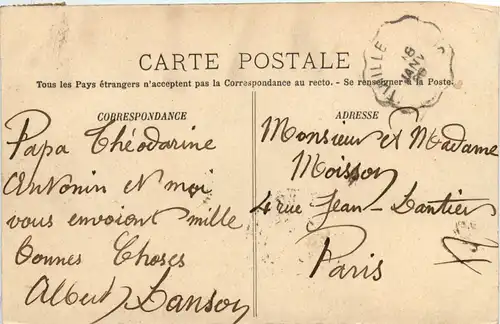 CARTE POSTALE
Tous les Pays étrangers n'acceptent pas la Correspondance au recto. - Se renseigner à la Poste.
CORRESPONDANCE
Papa Théodorine
Antonin et moi
vous envoient mille
bonnes choses
Albert Lanson
ADRESSE
Monsieur et Madame
Moisson
4 rue Jean-Lantier
Paris
16
JANV